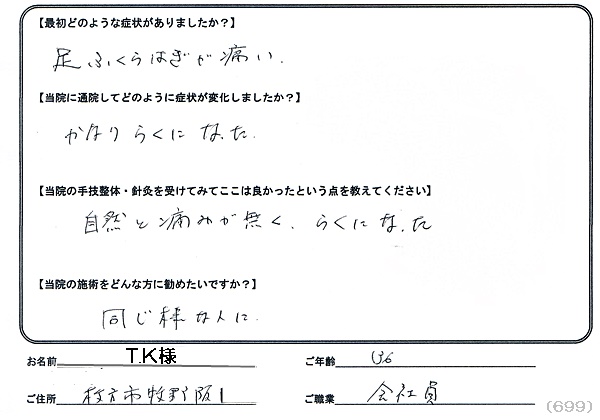 【最初どのような症状がありましたか？】
足ふくらはぎが痛い.
【当院に通院してどのように症状が変化しましたか？】
かなりらくになった.
【当院の手技整体・針灸を受けてみてここは良かったという点を教えてください】
自然と痛みが無く、らくになった
【当院の施術をどんな方に勧めたいですか？】
同じ様な人に.
お名前 T.K様 ご年齢
ご住所 枚方市牧野阪1 ご職業 会社員
(699)